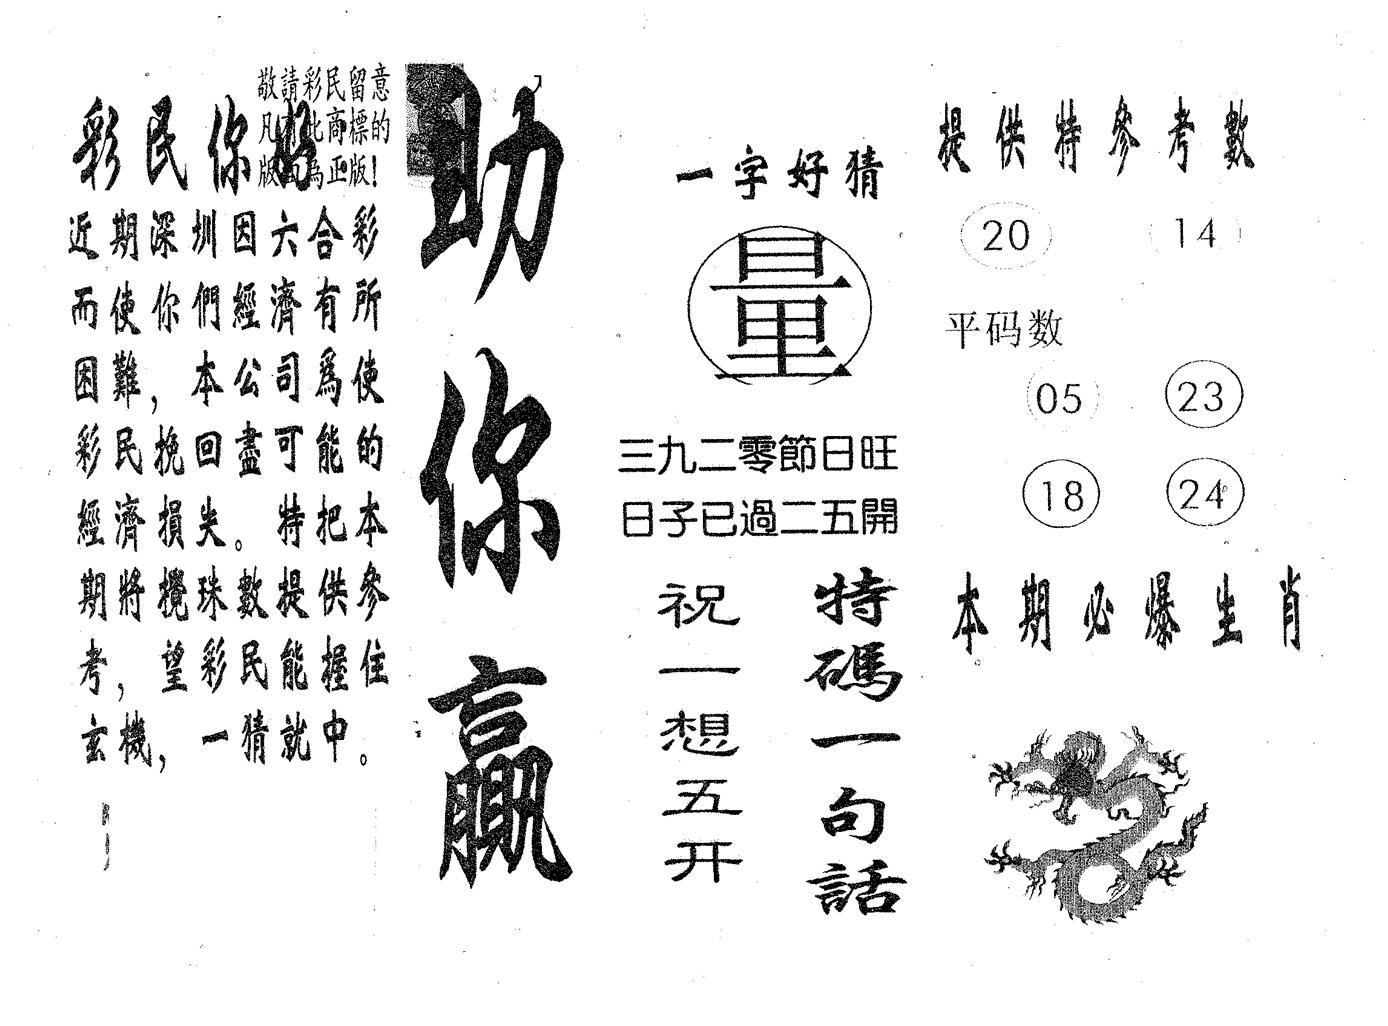 敬請彩民留意
凡有此商標的
版面為正版!
彩民你好
近期深圳因六合彩
而使你們經濟有所
困難，本公司爲使
彩民挽回盡可能的
經濟損失。特把本
期將攪珠數提供參
考，望彩民能握住
玄機，一猜就中。
助你贏
一字好猜
量
三九二零節日旺
日子已過二五開
特碼一句話
祝一想五开
提供特參考數
20 14
平码数
05 23
18 24
本期必爆生肖